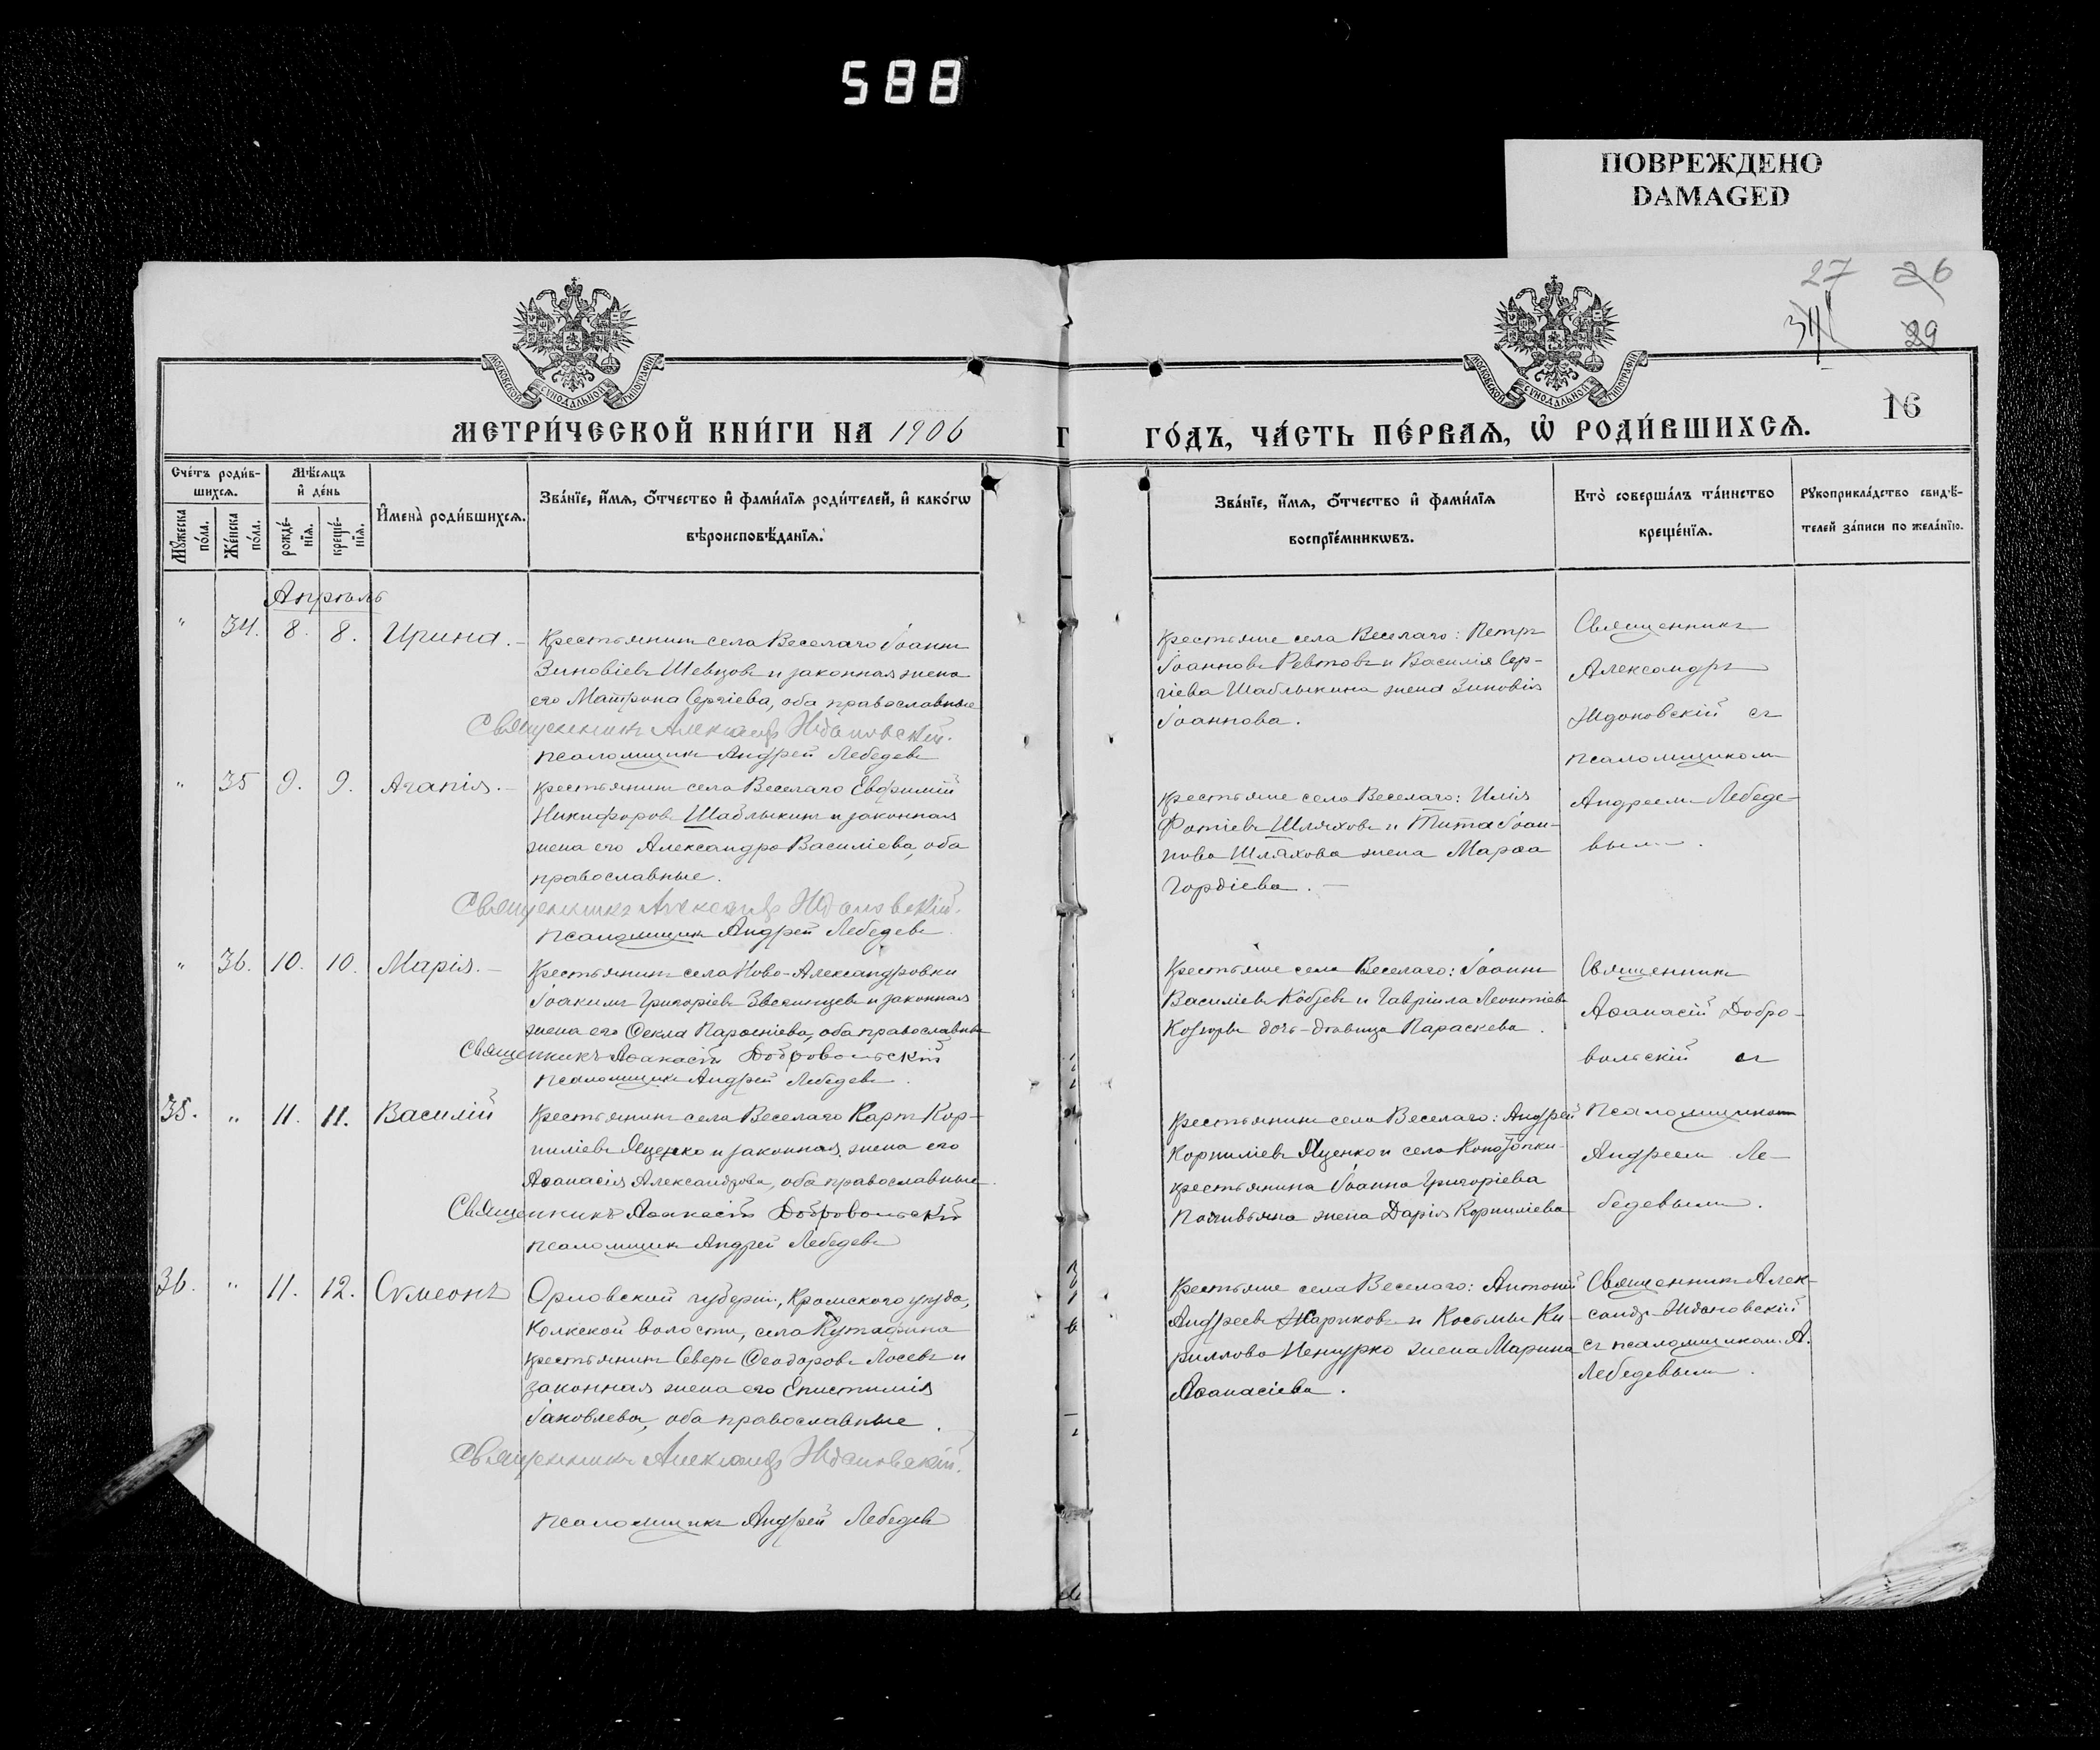 588
ПОВРЕЖДЕНО
DAMAGED
27 26
29
16
МОСКОВСКОЙ СѴНОДАЛЬНОЙ ТИПОГРАФІИ
МОСКОВСКОЙ СѴНОДАЛЬНОЙ ТИПОГРАФІИ
МЕТРИ́ЧЕСКОЙ КНИ́ГИ НА 1906
Г
ГО́ДЪ, ЧА́СТЬ ПЕ́РВАѦ, Ѽ РОДИ́ВШИХСѦ.
Сче́тъ роди́в-
шихсѧ.
Мꙋ́жеска по́ла.
Же́нска по́ла.
Мѣ́сѧцъ
и҆ де́нь
рожде́-
нїѧ.
креще́-
нїѧ.
И҆мена̀ роди́вшихсѧ.
Зва́нїе, и҆́мѧ, ѻ҆́тчество и҆ фами́лїѧ роди́телей, и҆ како́гѡ
вѣроисповѣ́данїѧ.
Зва́нїе, и҆́мѧ, ѻ҆́тчество и҆ фами́лїѧ
воспрїе́мникѡвъ.
Кто̀ соверша́лъ та́инство
креще́нїѧ.
Рꙋкоприкла́дство свидѣ́-
телей за́писи по жела́нїю.
Апрѣль
" 34. 8. 8. Ирина. –
Крестьянинъ села Веселаго Іоаннъ
Зиновіевъ Шевцовъ и законная жена
его Матрона Сергіева, оба православные
Священникъ Александръ Ждановскій.
псаломщикъ Андрей Лебедевъ
Крестьяне села Веселаго: Петръ
Іоанновъ Ревтовъ и Василія Сер-
гіева Шаблыкина жена Зиновія
Іоаннова.
Священникъ
Александръ
Ждановскій съ
псаломщикомъ
Андреемъ Лебеде-
вымъ.
" 35 9. 9. Агапія. –
Крестьянинъ села Веселаго Евфимій
Никифоровъ Шаблыкинъ и законная
жена его Александра Василіева, оба
православные.
Священникъ Александръ Ждановскій.
псаломщикъ Андрей Лебедевъ
Крестьяне села Веселаго: Илія
Фотіевъ Шляховъ и Тита Іоан-
нова Шляхова жена Марѳа
Гордіева. –
" 36. 10. 10. Марія. –
Крестьянинъ села Ново-Александровки
Іоакимъ Григоріевъ Звегинцевъ и законная
жена его Ѳекла Парѳеніева, оба православные
Священникъ Аѳанасій Добровольскій
псаломщикъ Андрей Лебедевъ.
Крестьяне села Веселаго: Іоаннъ
Василіевъ Кобзевъ и Гавріила Леонтіева
дочь-дѣвица Параскева.
Священникъ
Аѳанасій Добро-
вольскій съ
псаломщикомъ
Андреемъ Ле-
бедевымъ.
35. " 11. 11. Василій
Крестьянинъ села Веселаго Карпъ Кор-
ниліевъ Яценко и законная жена его
Аѳанасія Александрова, оба православные.
Священникъ Аѳанасій Добровольскій
псаломщикъ Андрей Лебедевъ
Крестьянинъ села Веселаго: Андрей
Корниліевъ Яценко и села Конотопки
крестьянина Іоанна Григоріева
жена Дарія Корниліева
36. " 11. 12. Сѵмеонъ
Орловской губерн., Кромскаго уѣзда,
Колкской волости, села Кутафина
крестьянинъ Северъ Ѳеодоровъ Лосевъ и
законная жена его Епистимія
Іаковлева, оба православные.
Священникъ Александръ Ждановскій.
псаломщикъ Андрей Лебедевъ
Крестьяне села Веселаго: Антоній
Андреевъ Жариковъ и Косьмы Ки-
риллова жена Марина
Аѳанасіева.
Священникъ Алек-
сандръ Ждановскій
съ псаломщикомъ А.
Лебедевымъ.